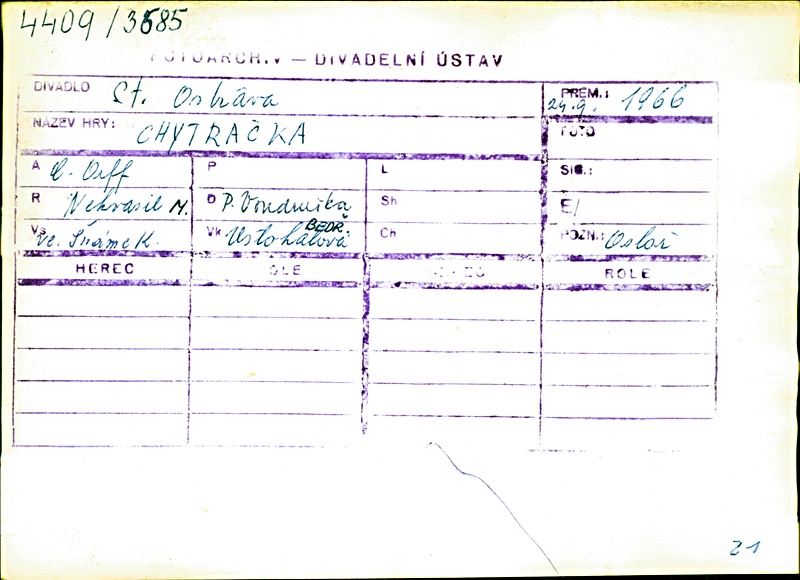 4409/3685
FOTOARCHIV — DIVADELNÍ ÚSTAV
DIVADLO St. Ostrava PREM.: 24.9. 1966
NÁZEV HRY: CHYTRAČKA FOTO
A C. Orff P L SIG.:
R Nekvasil M. D P. Vondruška Sh E/
Vs Ve. Šrámek. Vk BEDŘ. Ch POZN.: Oslov
HEREC ROLE HEREC ROLE
21